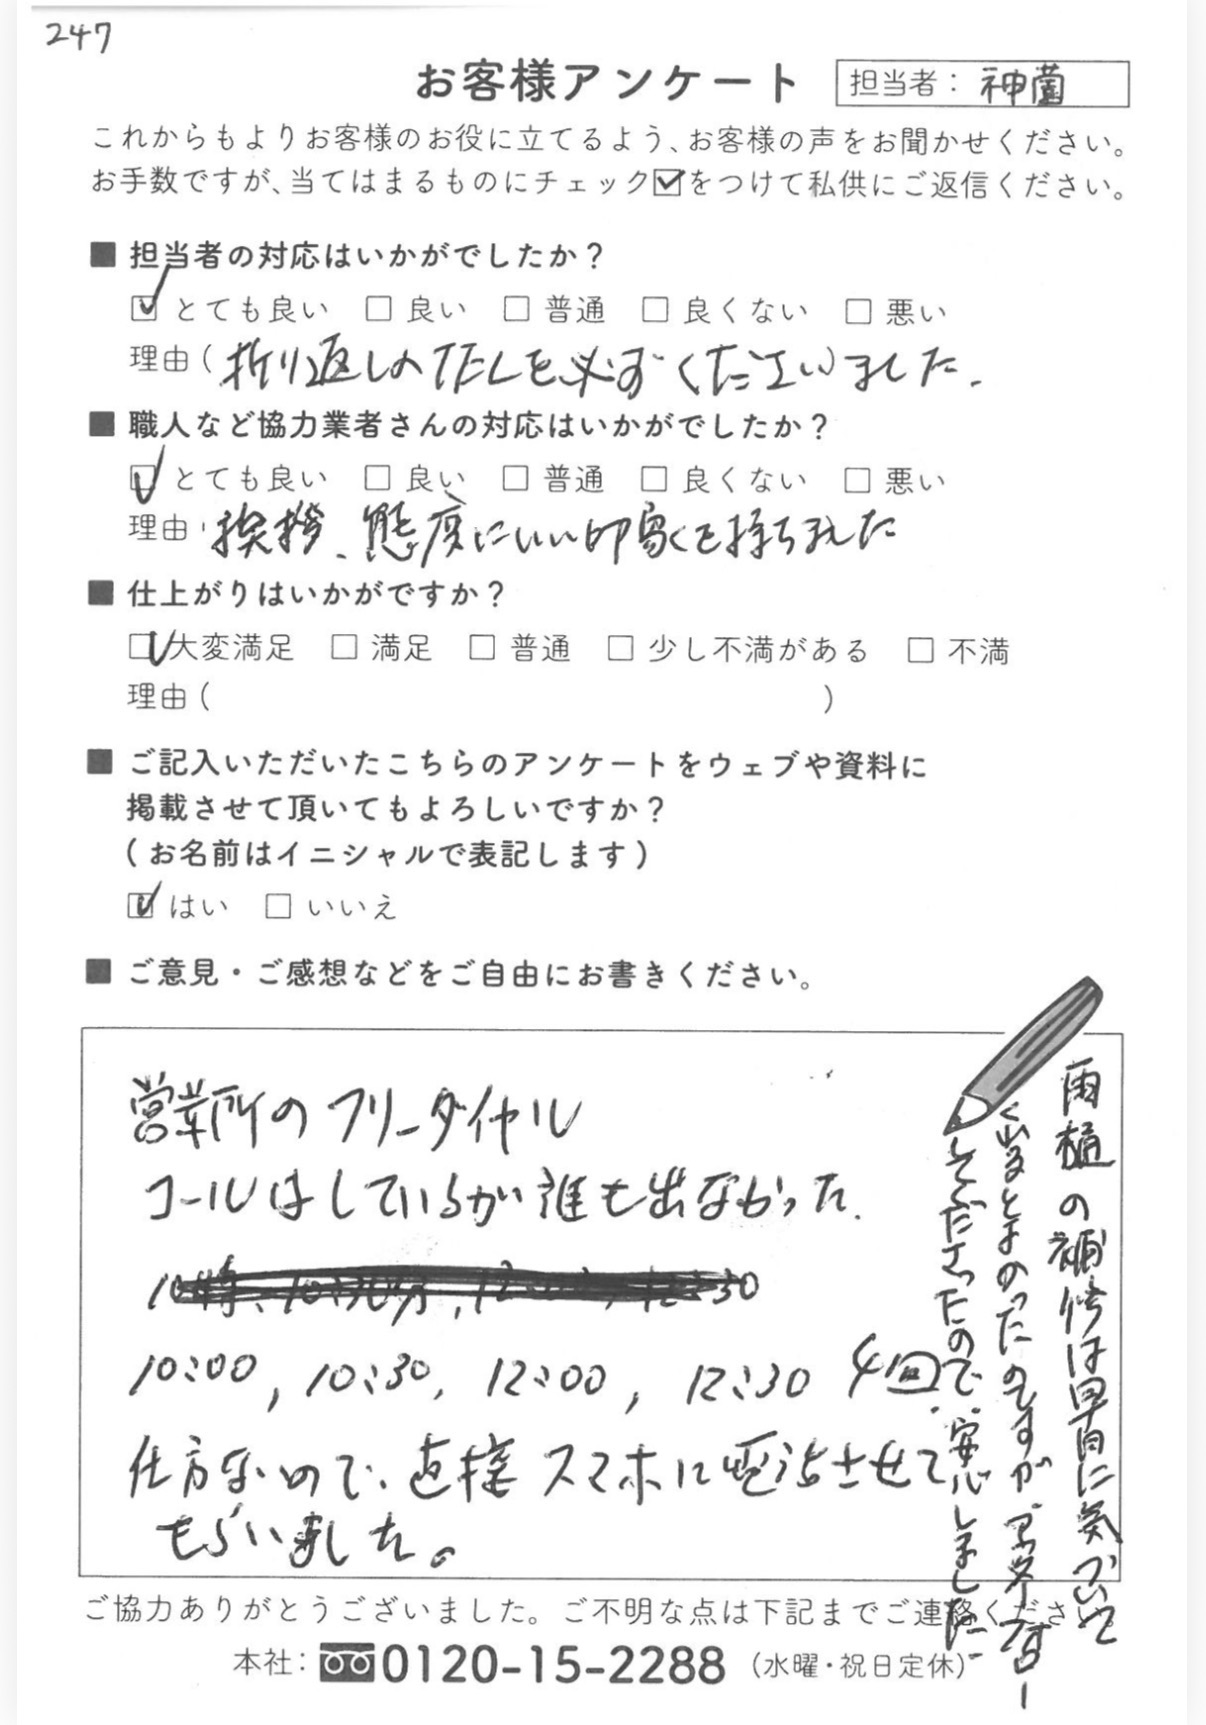 247
お客様アンケート
担当者： 神薗
これからもよりお客様のお役に立てるよう、お客様の声をお聞かせください。
お手数ですが、当てはまるものにチェック☑をつけて私供にご返信ください。
■ 担当者の対応はいかがでしたか？
☑ とても良い □ 良い □ 普通 □ 良くない □ 悪い
理由（ 折り返しのTELを必ずくださいました.
■ 職人など協力業者さんの対応はいかがでしたか？
☑ とても良い □ 良い □ 普通 □ 良くない □ 悪い
理由 挨拶、態度にいい印象を持ちました
■ 仕上がりはいかがですか？
☑ 大変満足 □ 満足 □ 普通 □ 少し不満がある □ 不満
理由（ ）
■ ご記入いただいたこちらのアンケートをウェブや資料に
掲載させて頂いてもよろしいですか？
（お名前はイニシャルで表記します）
☑ はい □ いいえ
■ ご意見・ご感想などをご自由にお書きください。
営業所のフリーダイヤル
コールはしているが誰も出なかった.
10:00, 10:30, 12:00, 12:30 4回
仕方ないので、直接スマホに電話させて
もらいました。
雨樋の補修は早目に気づいて
くださったので、安心しました
ご協力ありがとうございました。ご不明な点は下記までご連絡ください。
本社： 0120-15-2288 （水曜・祝日定休）